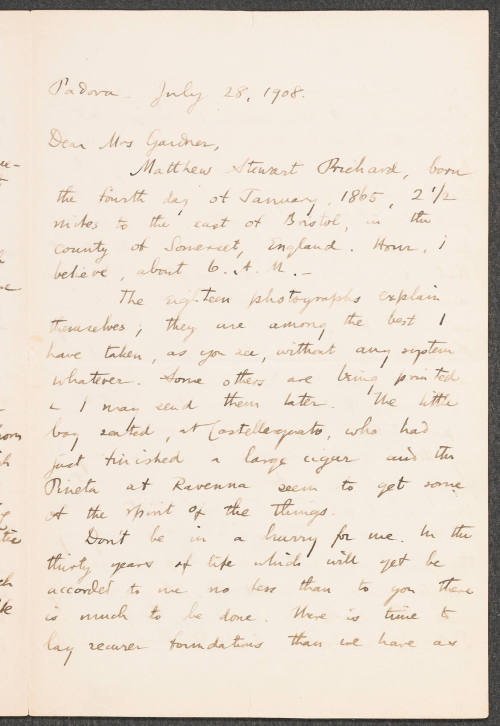 Padova July 28, 1908.
Dear Mrs Gardner,
Matthew Stewart Prichard, born
the fourth day of January, 1865, 2 1/2
miles to the east of Bristol, in the
county of Somerset, England. Hour, I
believe, about 6. A. M. –
The eighteen photographs explain
themselves; they are among the best I
have taken, as you see, without any system
whatever. Some others are being printed
& I may send them later. The little
boy seated, at Castellarquato, who had
just finished a large cigar and the
Pineta at Ravenna seem to get some
of the spirit of the things.
Don't be in a hurry for me. In the
thirty years of life which will yet be
accorded to me no less than to you there
is much to be done. There is time to
lay securer foundations than we have as